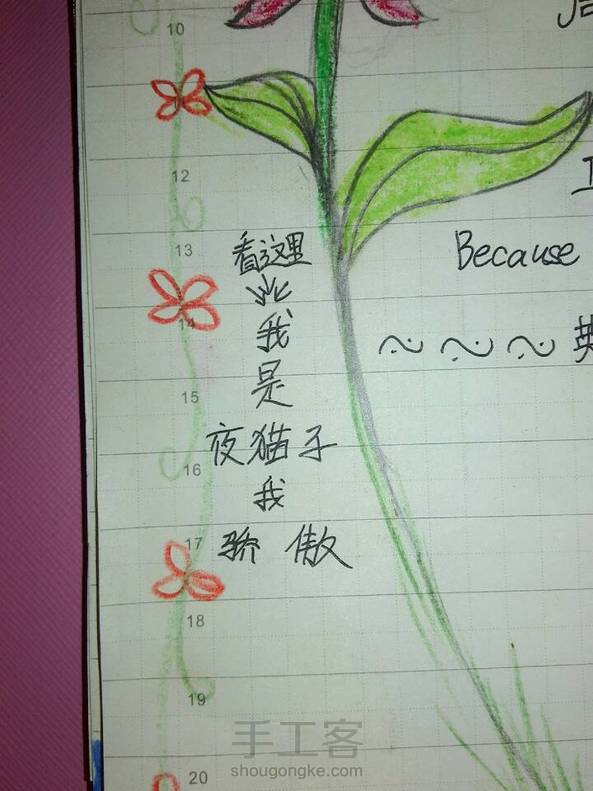 10
12
13
看这里
Because
14
我
是
15
夜猫子
16
我
17
骄傲
18
19
20
手工客
shougongke.com